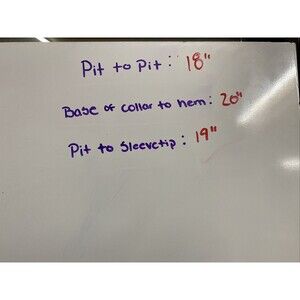 Pit to Pit: 18"
Base of collar to hem: 20"
Pit to Sleevetip: 19"